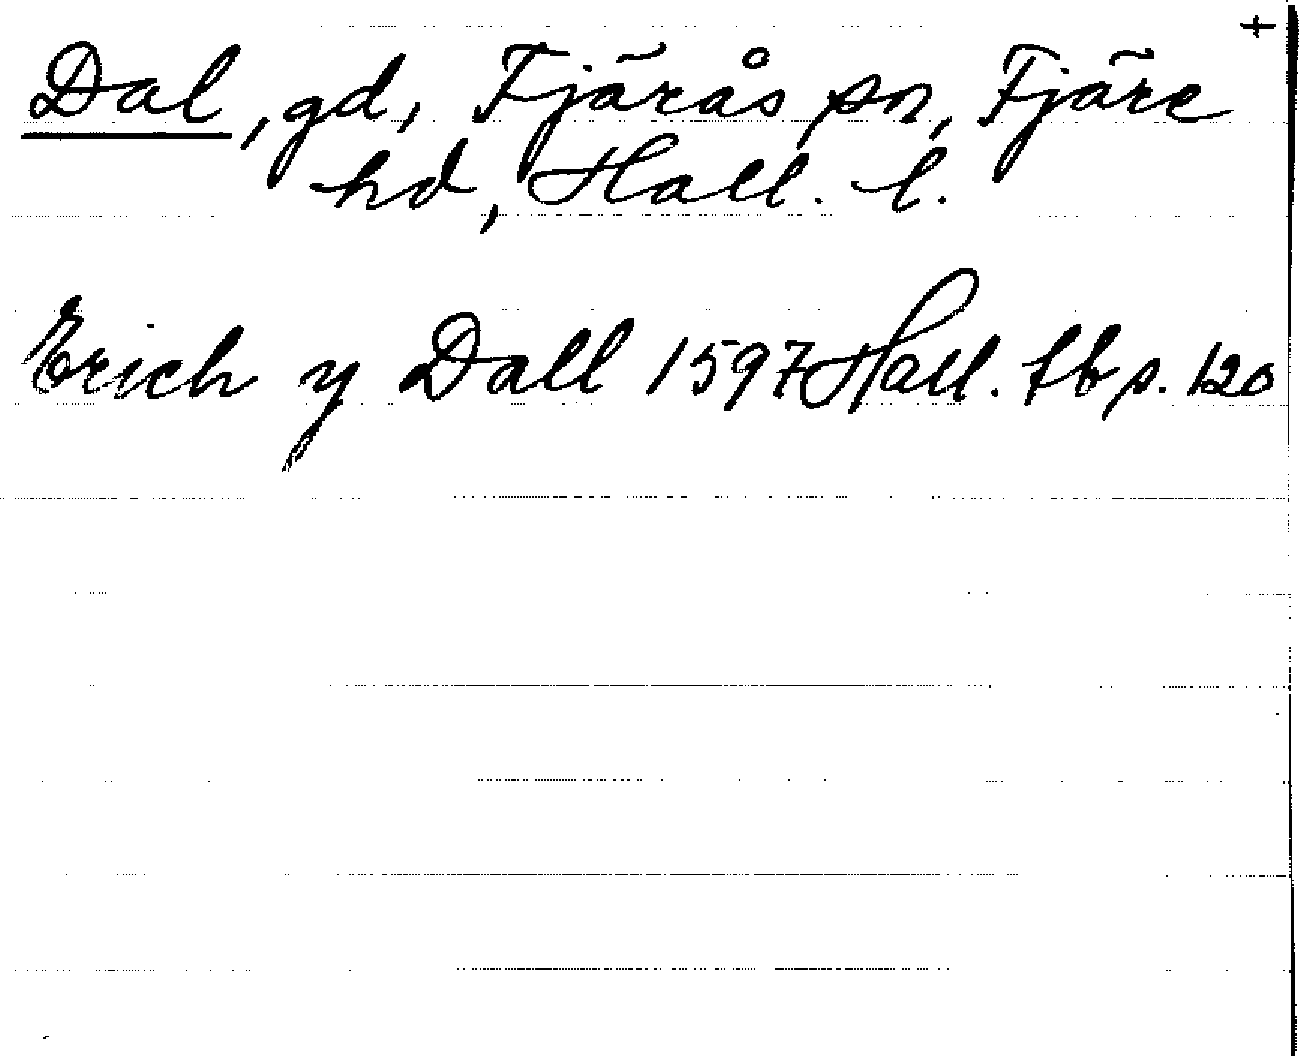 +
Dal, gd, Fjärås sn, Fjäre
hd, Hall. l.
Erich y Dall 1597 Hall. tb s. 120